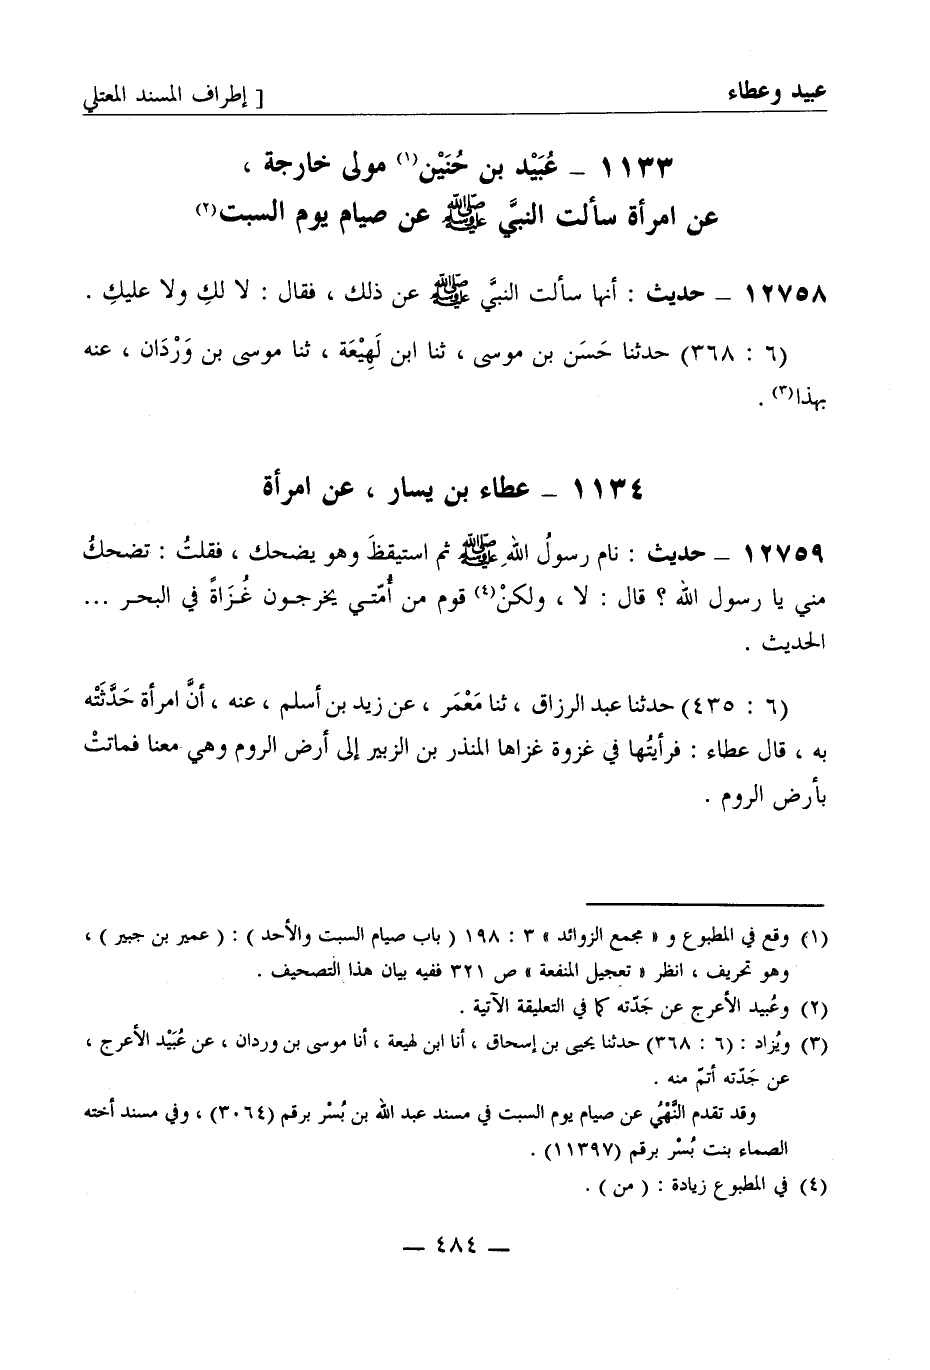 عبيد وعطاء [ إطراف المسند المعتلي
١١٣٣ – عُبَيْد بن حُنَيْن(١) مولى خارجة ،
عن امرأة سألت النبيَّ ﷺ عن صيام يوم السبت(٢)
١٢٧٥٨ – حديث : أنها سألت النبيَّ ﷺ عن ذلك ، فقال : لا لكِ ولا عليكِ .
(٦ : ٣٦٨) حدثنا حَسَن بن موسى ، ثنا ابن لَهِيْعَة ، ثنا موسى بن وَرْدَان ، عنه
بهذا(٣) .
١١٣٤ – عطاء بن يسار ، عن امرأة
١٢٧٥٩ – حديث : نام رسولُ اللهِ ﷺ ثم استيقظَ وهو يضحك ، فقلتُ : تضحكُ
مني يا رسول الله ؟ قال : لا ، ولكنْ(٤) قوم من أُمّتي يخرجون غُزَاةً في البحر ...
الحديث .
(٦ : ٤٣٥) حدثنا عبد الرزاق ، ثنا مَعْمَر ، عن زيد بن أسلم ، عنه ، أنَّ امرأة حَدَّثَتْه
به ، قال عطاء : فرأيتُها في غزوة غزاها المنذر بن الزبير إلى أرض الروم وهي معنا فماتتْ
بأرض الروم .
(١) وقع في المطبوع و « مجمع الزوائد » ٣ : ١٩٨ ( باب صيام السبت والأحد ) : ( عمير بن جبير ) ،
وهو تحريف ، انظر « تعجيل المنفعة » ص ٣٢١ ففيه بيان هذا التصحيف .
(٢) وعُبيد الأعرج عن جَدّته كما في التعليقة الآتية .
(٣) ويُزاد : (٦ : ٣٦٨) حدثنا يحيى بن إسحاق ، أنا ابن لهيعة ، أنا موسى بن وردان ، عن عُبَيْد الأعرج ،
عن جَدّته أتمّ منه .
وقد تقدم النَّهْيُ عن صيام يوم السبت في مسند عبد الله بن بُسْر برقم (٣٠٦٤) ، وفي مسند أخته
الصماء بنت بُسْر برقم (١١٣٩٧) .
(٤) في المطبوع زيادة : ( من ) .
– ٤٨٤ –